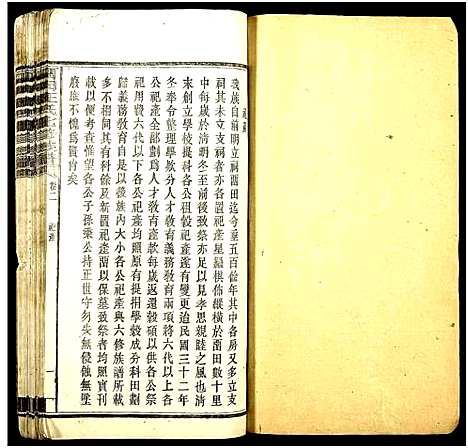 祀產
我族自前明立祠莆田迄今垂五百餘年其中各房又多立支
祠其未立支祠者亦各置祀產星羅棋佈縱橫於莆田數十里
中每歲於清明冬至前後致祭亦足以見孝思親睦之風也清
末創立學校提科各公租穀祀產遂有變更迨民國三十二年
冬奉令整理學款分人才教育義務教育兩項將六代以上各
公祀產全部劃爲人才教育產款每歲返還穀碩以供各公祭
祀用費六代以下各公祀產均照原有提捐學穀成分科田劃
歸義務教育自是以後族內大小各公祀產與六修族譜所載
均有科餘及新置祀產而以保墓致祭者均照實刊
載以便考查惟望各公子孫秉公持正世守勿失無侵蝕無墜
廢庶不愧爲賢肖矣
卷二
祀產
一